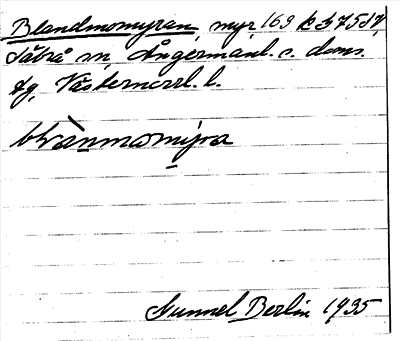 Blandmomyran, myr 169
Säbrå sn, Ångermanl. s. doms.
tg, Västernorrl. l.
blrànmomýra
Gunnel Berlin 1935